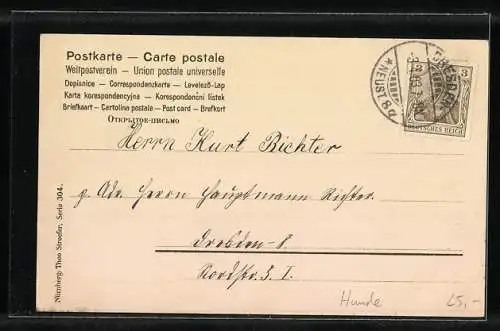 Postkarte — Carte postale
Weltpostverein — Union postale universelle
Dopisnice — Correspondenzkarte — Levelező-Lap
Karta korespondencyjna — Korespondenční lístek
Briefkaart — Cartolina postale — Post card — Brefkort
Открытое письмо
DRESDEN
NEUST. 8
3 3
DEUTSCHES REICH
Herrn Kurt Richter
z. Adr. Herrn Hauptmann Richter.
Dresden-N.
Nordstr. 5. I.
Nürnberg: Theo Stroefer, Serie 304.
Hunde
25,-